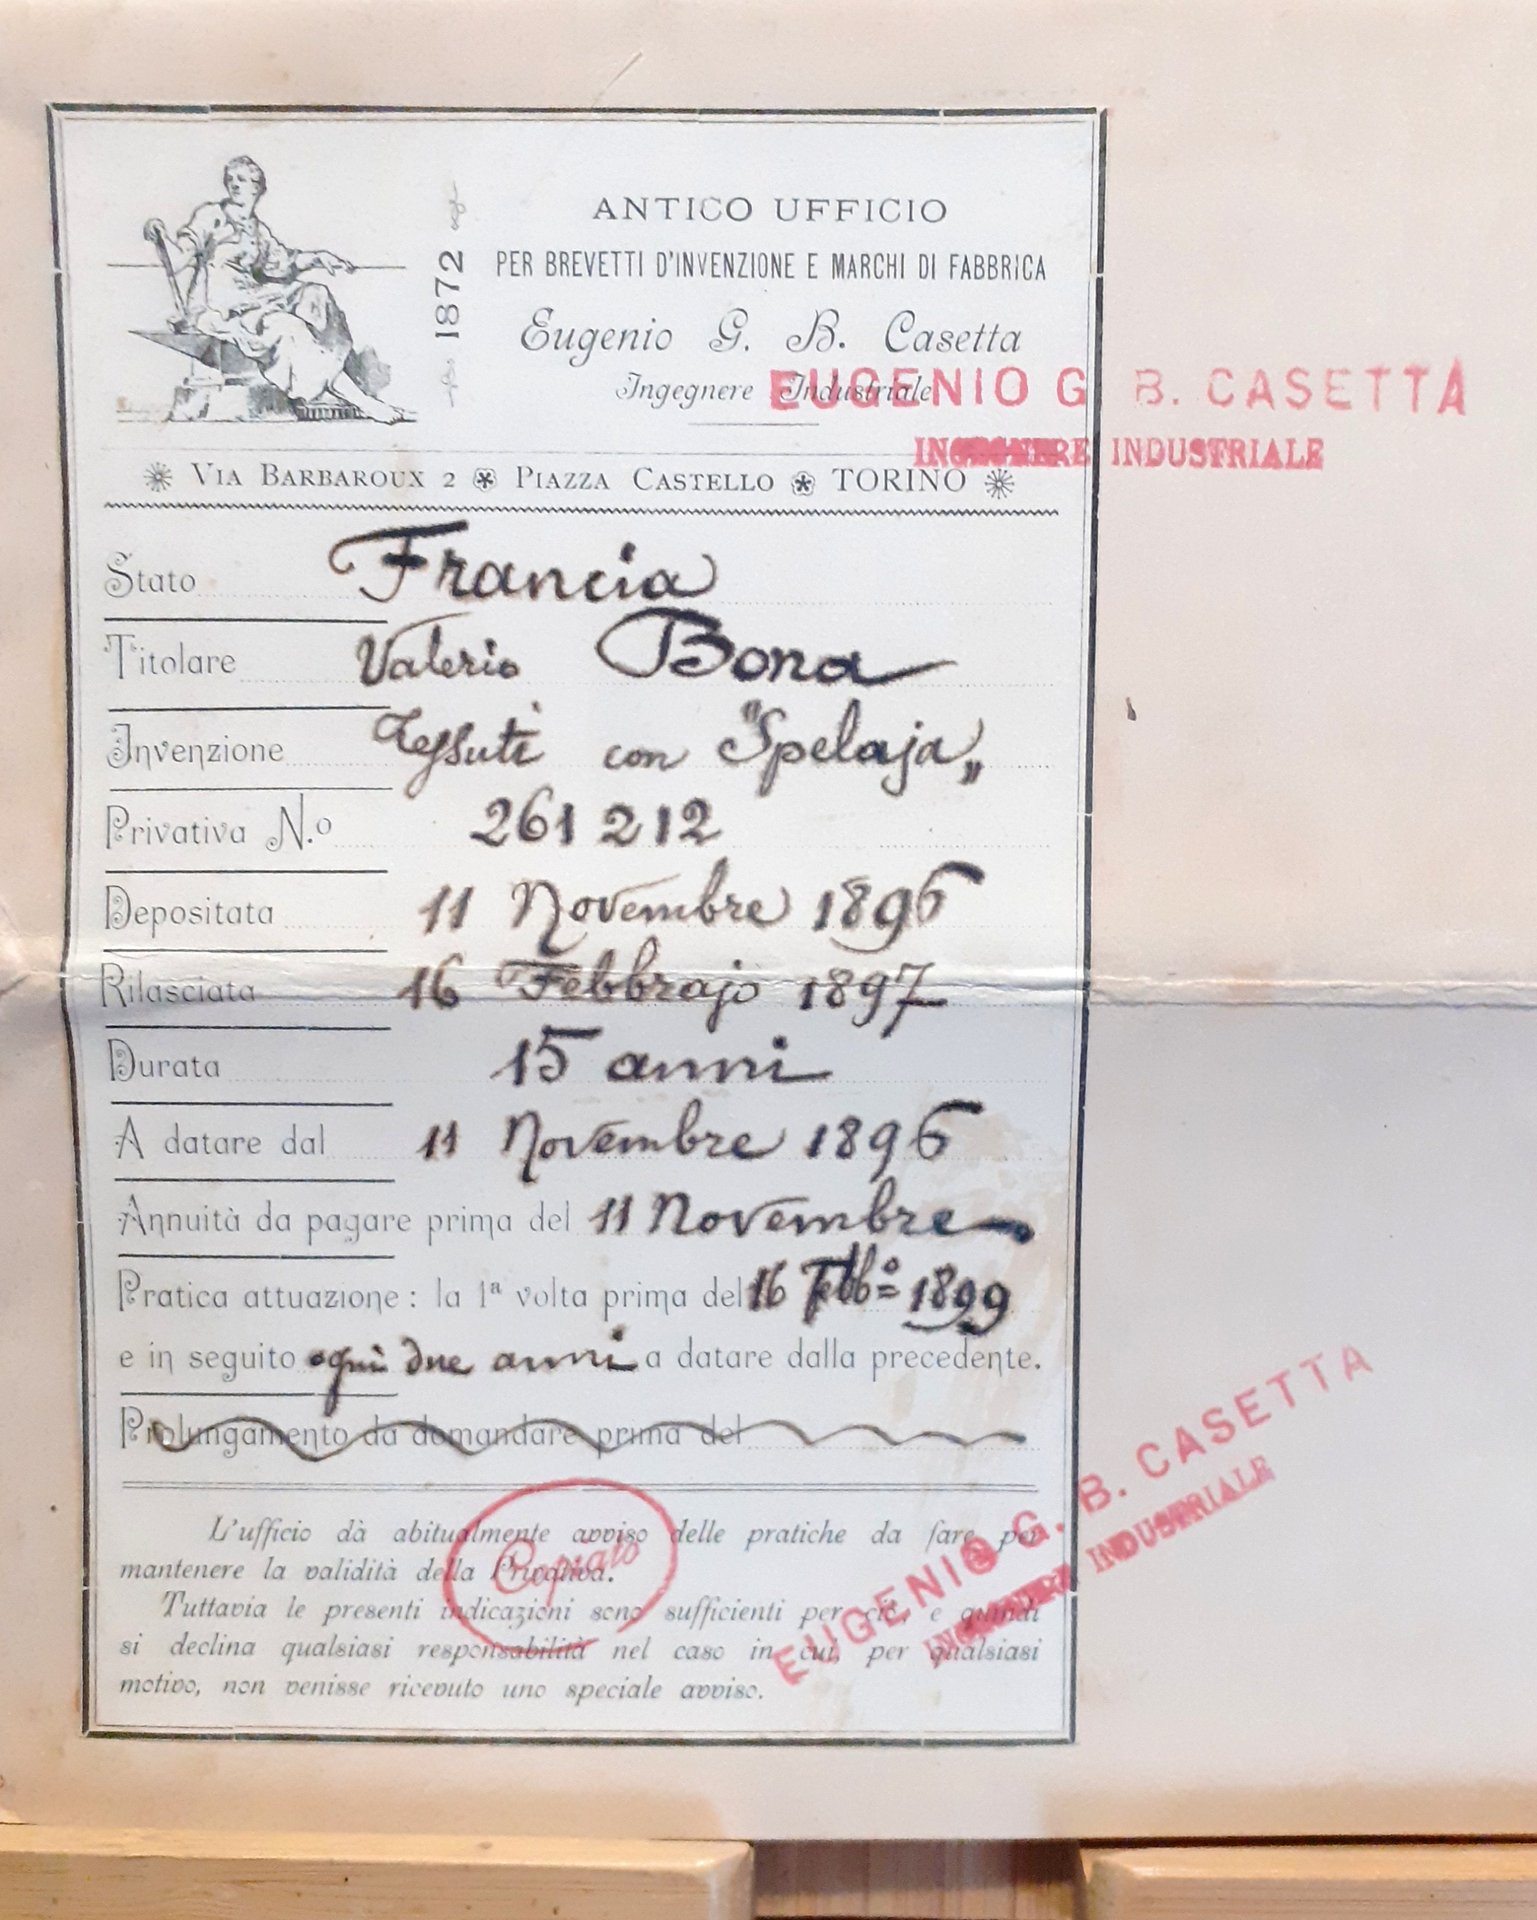 1872
ANTICO UFFICIO
PER BREVETTI D'INVENZIONE E MARCHI DI FABBRICA
Eugenio G. B. Casetta
Ingegnere Industriale
EUGENIO G. B. CASETTA
INGEGNERE INDUSTRIALE
VIA BARBAROUX 2 PIAZZA CASTELLO TORINO
Stato Francia
Titolare Valerio Bona
Invenzione Tessuti con "Spelaja„
Privativa N.o 261 212
Depositata 11 Novembre 1896
Rilasciata 16 Febbrajo 1897
Durata 15 anni
A datare dal 11 Novembre 1896
Annuità da pagare prima del 11 Novembre
Pratica attuazione: la 1a volta prima del 16 Febb.o 1899
e in seguito ogni due anni a datare dalla precedente.
Prolungamento da domandare prima del
L'ufficio dà abitualmente avviso delle pratiche da fare per
mantenere la validità della Privativa.
Tuttavia le presenti indicazioni sono sufficienti per ciò, e quindi
si declina qualsiasi responsabilità nel caso in cui, per qualsiasi
motivo, non venisse ricevuto uno speciale avviso.
Copiato
EUGENIO G. B. CASETTA
INGEGNERE INDUSTRIALE